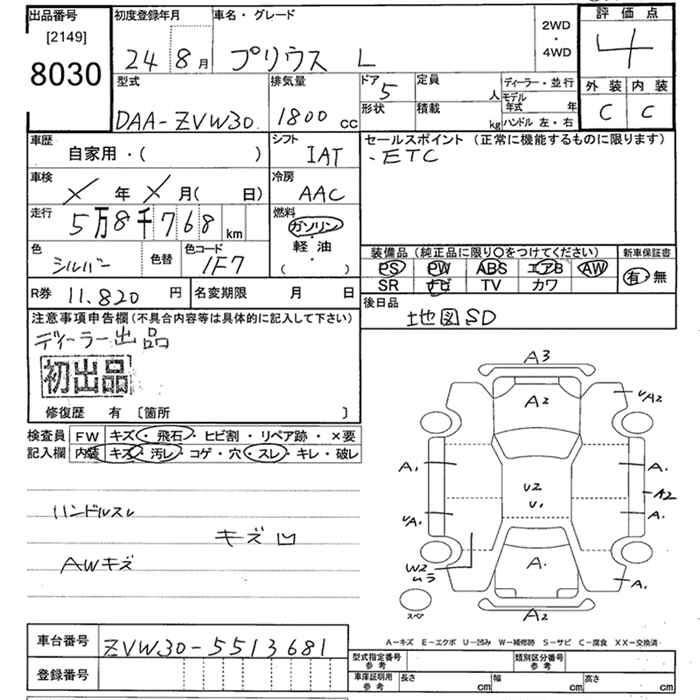 出品番号 初度登録年月 車名・グレード 2WD・4WD 評価点
[2149]
8030 24 8月 プリウス L 4
型式 排気量 ドア 5 定員 人 ディーラー・並行 外装 内装
DAA-ZVW30 1800 cc 形状 積載 kg モデル年式 年 ハンドル 左・右 C C
車歴 シフト セールスポイント (正常に機能するものに限ります)
自家用・( ) IAT ・ETC
車検 冷房
X 年 X 月( 日) AAC
走行 燃料
5万8千768 km ガソリン
軽油
( )
色 色替 色コード 装備品(純正品に限り○をつけてください) 新車保証書
シルバー 1F7 PS PW ABS エアB AW 有・無
SR ナビ TV カワ
R券 11.820 円 名変期限 月 日 後日品
地図SD
注意事項申告欄(不具合内容等は具体的に記入して下さい)
ディーラー出品
初出品
修復歴 有 〔箇所 〕
検査員 FW キズ・飛石・ヒビ割・リペア跡・×要
記入欄 内装 キズ・汚レ・コゲ・穴・スレ・キレ・破レ
ハンドルスレ
キズ凹
AWキズ
A3
A2
UA2
A1
A2
U2
U1
UA1
A1
W2
ムラ
A1
A1
スペア
A2
A-キズ E-エクボ U-凹み W-補修跡 S-サビ C-腐食 XX-交換済
車台番号 ZVW30-5513681
登録番号
型式指定番号 参考 類別区分番号 参考
車庫証明用 参考 長さ cm 幅 cm 高さ cm